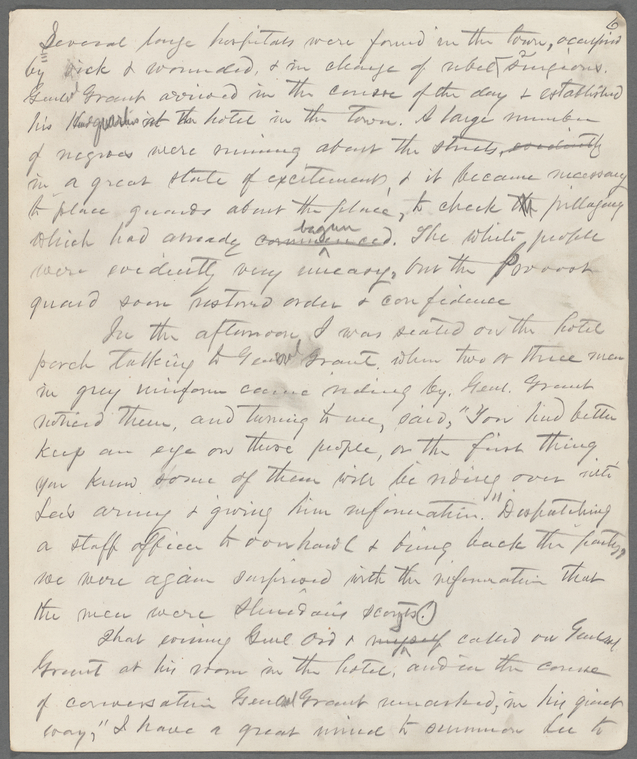 6
Several large hospitals were found in the town, occupied
by sick & wounded, & in charge of rebel Surgeons.
Genl Grant arrived in the course of the day & established
his Headquarters at the hotel in the town. A large number
of negroes were running about the streets, evidently
in a great state of excitement, & it became necessary
to place guards about the place, to check the pillaging
which had already commenced begun. The white people
were evidently very uneasy, but the Provost
guard soon restored order & confidence
In the afternoon, I was seated on the hotel
porch talking to General Grant, when two or three men
in grey uniform came riding by. Genl. Grant
noticed them, and turning to me, said, "You had better
keep an eye on those people, or the first thing
you know some of them will be riding over into
Lee's army & giving him information." Despatching
a staff officer to overhaul & bring back the party,
we were again surprised with the information that
the men were Sheridan's scouts.)
That evening Genl Ord & myself called on General
Grant at his room in the hotel, and in the course
of conversation General Grant remarked, in his quiet
way, "I have a great mind to summon Lee to